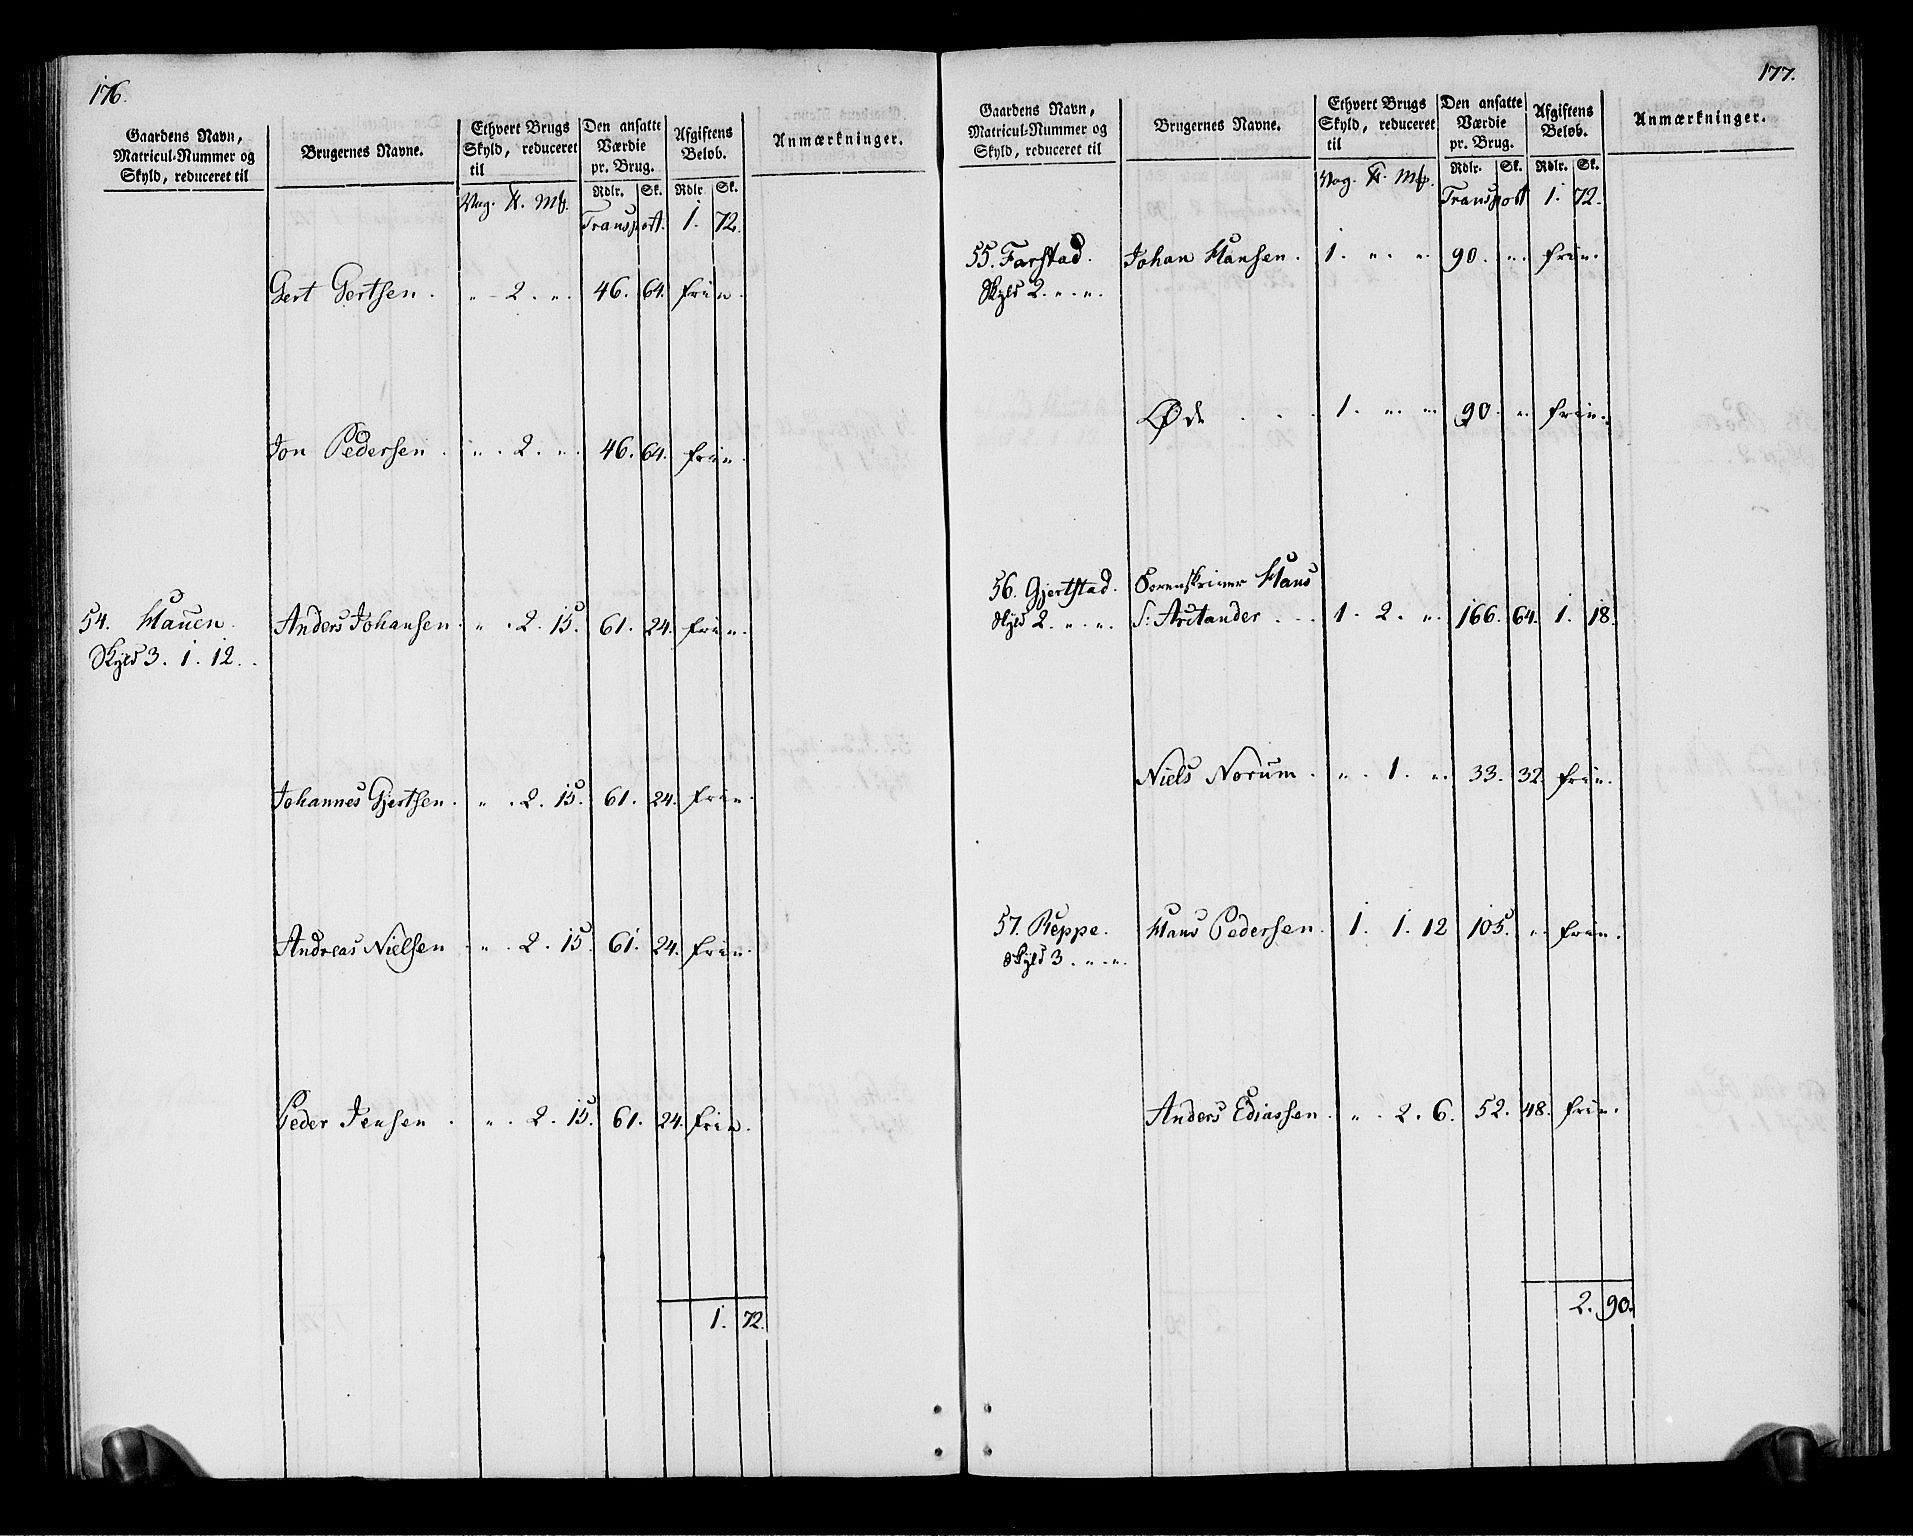 176.
Gaardens Navn, Matricul-Nummer og Skyld, reduceret til | Brugernes Navne. | Ethvert Brugs Skyld, reduceret til | Den ansatte Værdie pr. Brug. | Afgiftens Beløb. | Anmærkninger.
Vog. ℔. Mk. | Rdlr. | Sk. | Rdlr | Sk.
Transport. 1. 72.
Gert Gertsen . " - 2. ". 46. 64. frie.
Jon Pedersen . " . 2. ". 46. 64. frie.
54. Hauen. Anders Johansen. " . 2. 15. 61. 24. frie.
Skyld 3. 1. 12.
Johannes Gjertsen. " . 2. 15. 61. 24. frie.
Andreas Nielsen . " . 2. 15. 61. 24. frie.
Peder Jensen . " . 2. 15. 61. 24. frie.
1. 72.
177.
Gaardens Navn, Matricul-Nummer og Skyld, reduceret til | Brugernes Navne. | Ethvert Brugs Skyld, reduceret til | Den ansatte Værdie pr. Brug. | Afgiftens Beløb. | Anmærkninger.
Vog. ℔. Mk. | Rdlr. | Sk. | Rdlr. | Sk.
Transport 1. 72.
55. Farstad. Johan Hansen . 1. ". " 90. ". frie.
Skyld 2. ". ".
Øde . . . 1. ". " 90. ". frie.
56. Gjertstad. Sorenskriver Hans
Skyld 2. ". ". S: Arctander . . . 1. 2. ". 166. 64. 1. 18.
Niels Norum . ". 1. ". 33. 32. frie.
57. Reppe. Hans Pedersen . 1. 1. 12 105. ". frie.
Skyld 3. ". ".
Anders Ediassen . ". 2. 6. 52. 48. frie.
2. 90.